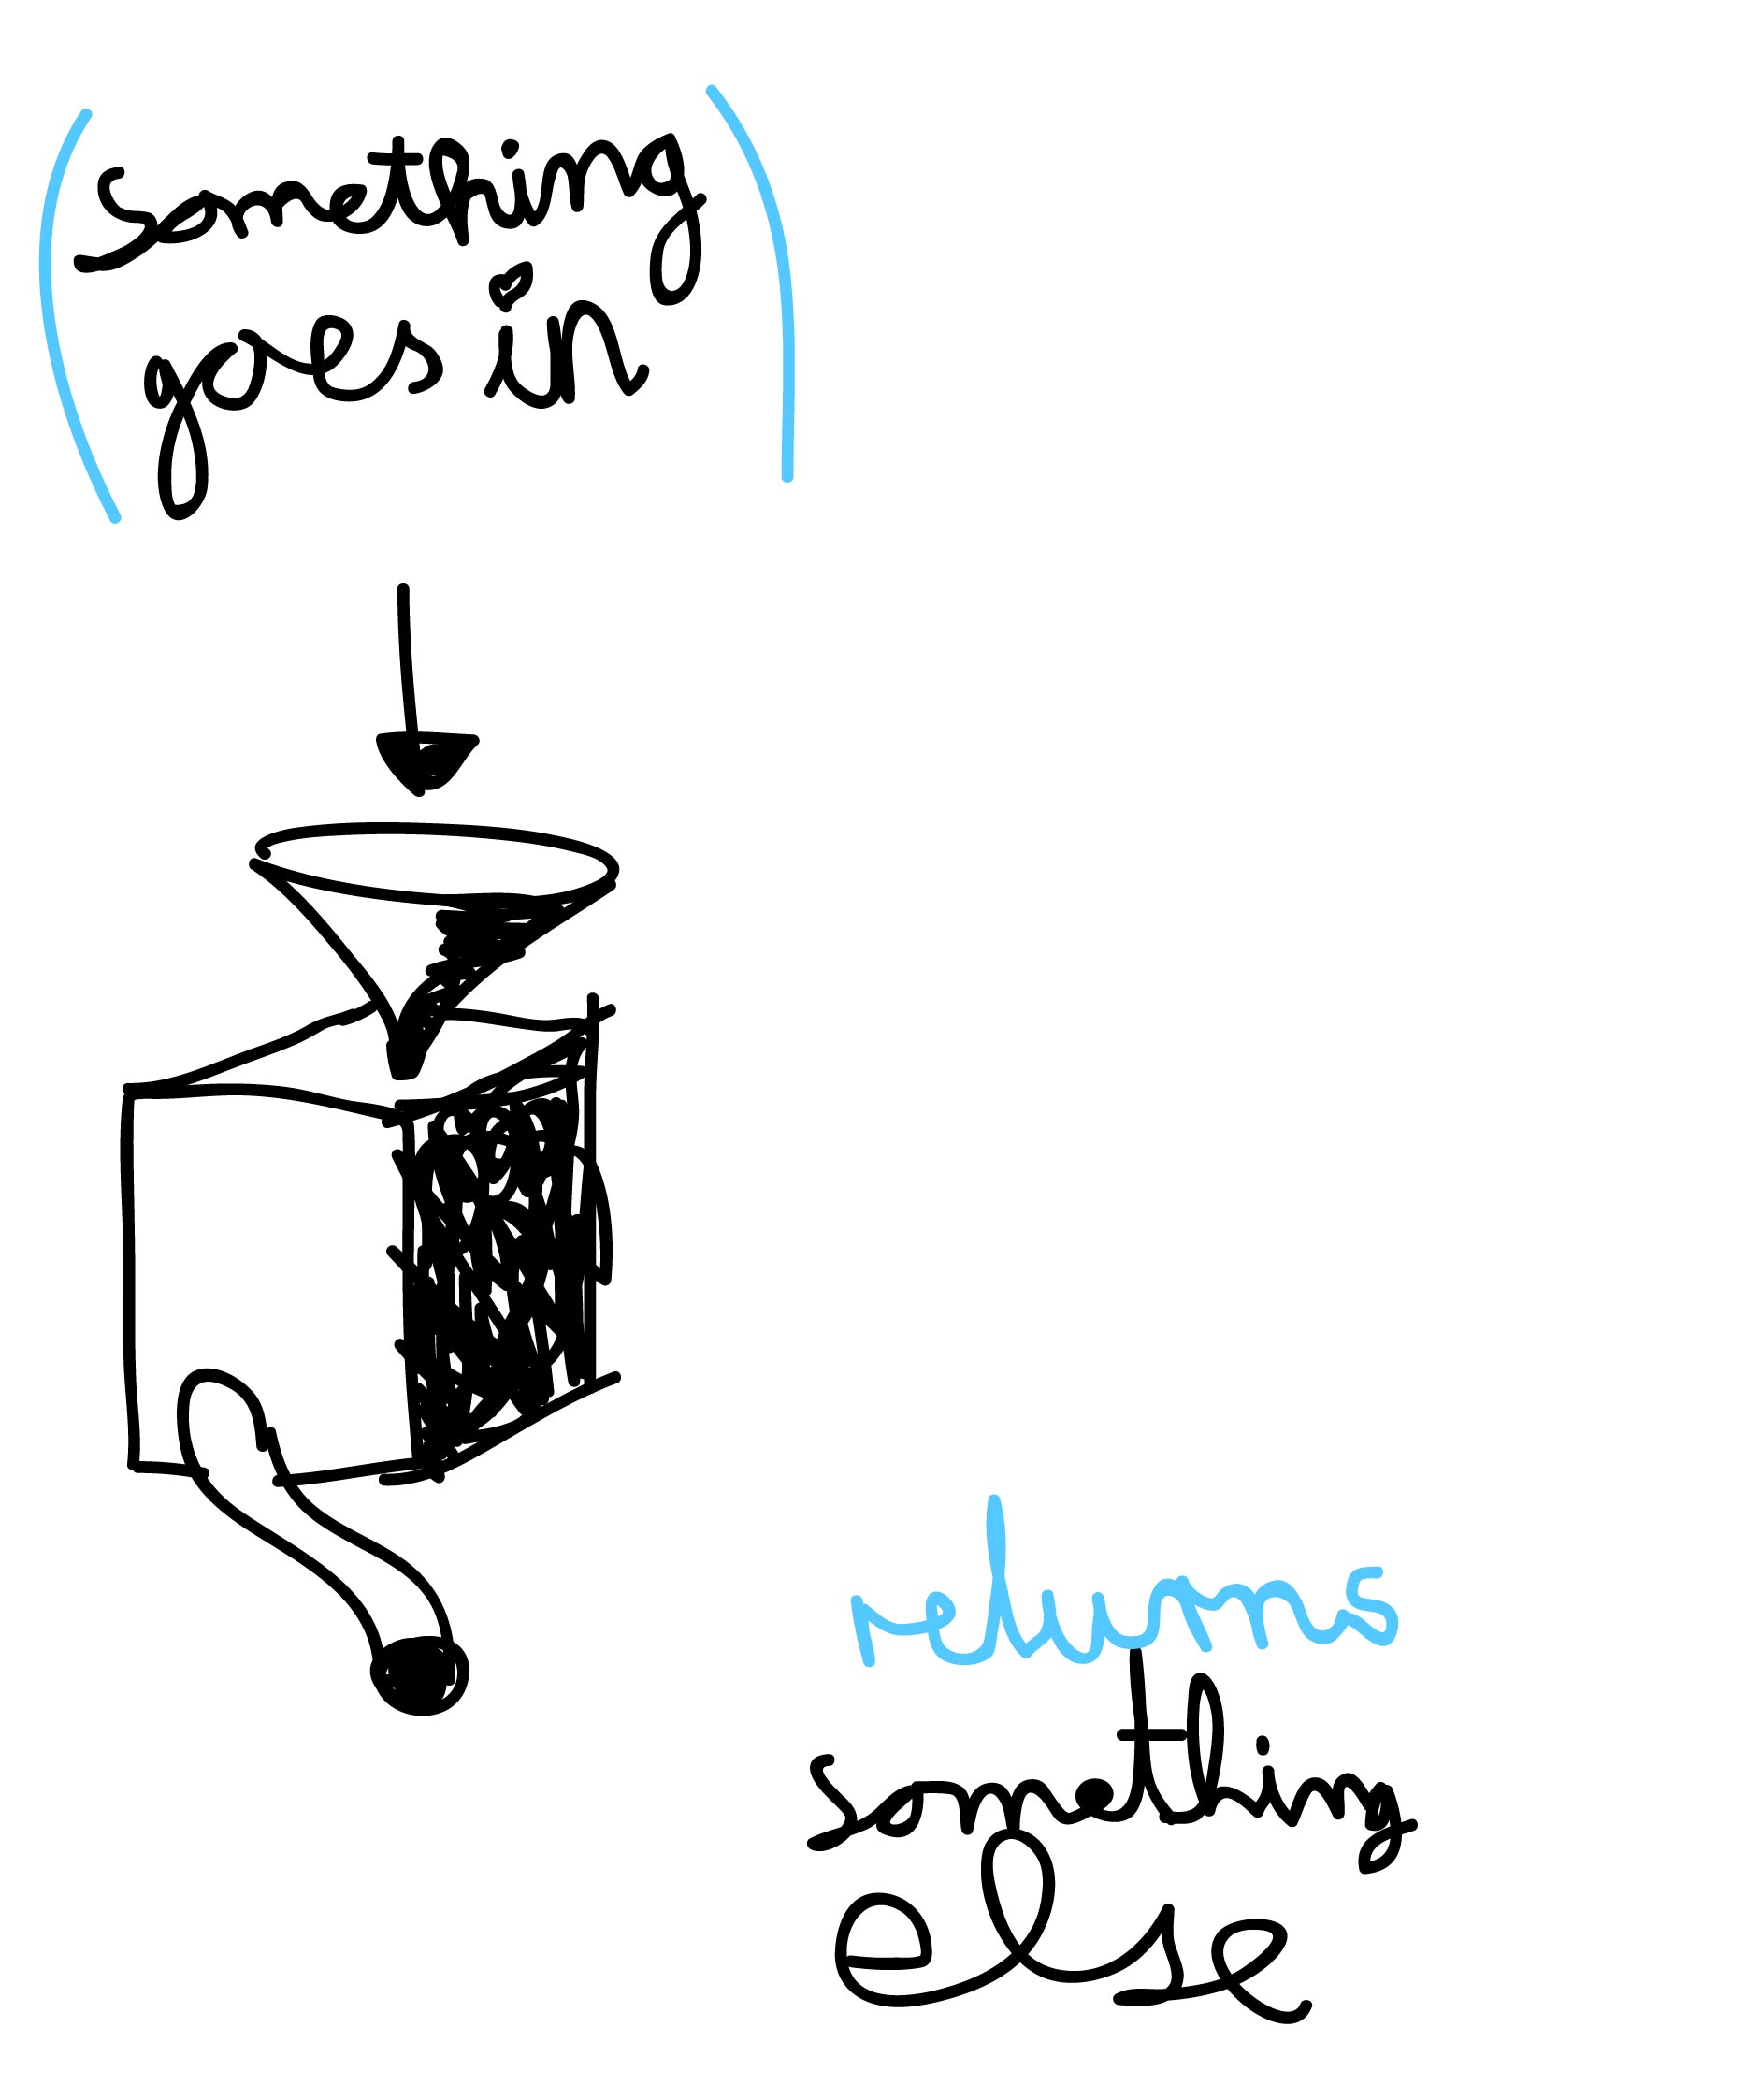 (something
goes in)
returns
something
else